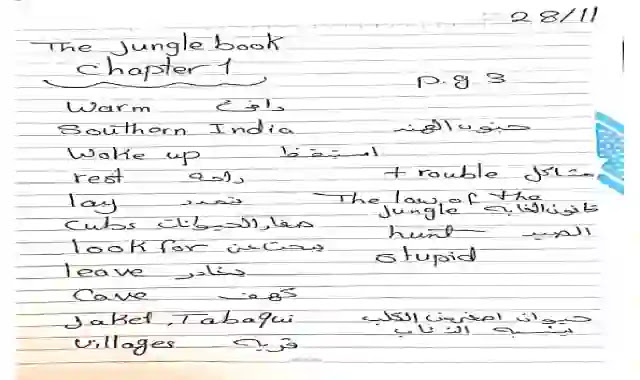 28/11
The Jungle book
Chapter 1
p.g.3
Warm دافئ
Southern India جنوب الهند
Woke up استيقظ
rest راحه
trouble مشاكل
lay تمدد
The law of the Jungle قانون الغابه
Cubs صغار الحيوانات
hunt الصيد
look for يبحث عن
stupid
leave يغادر
Cave كهف
Jakel, Tabaqui حيوان اصغر من الكلب
يشبه الذئاب
villages قريه